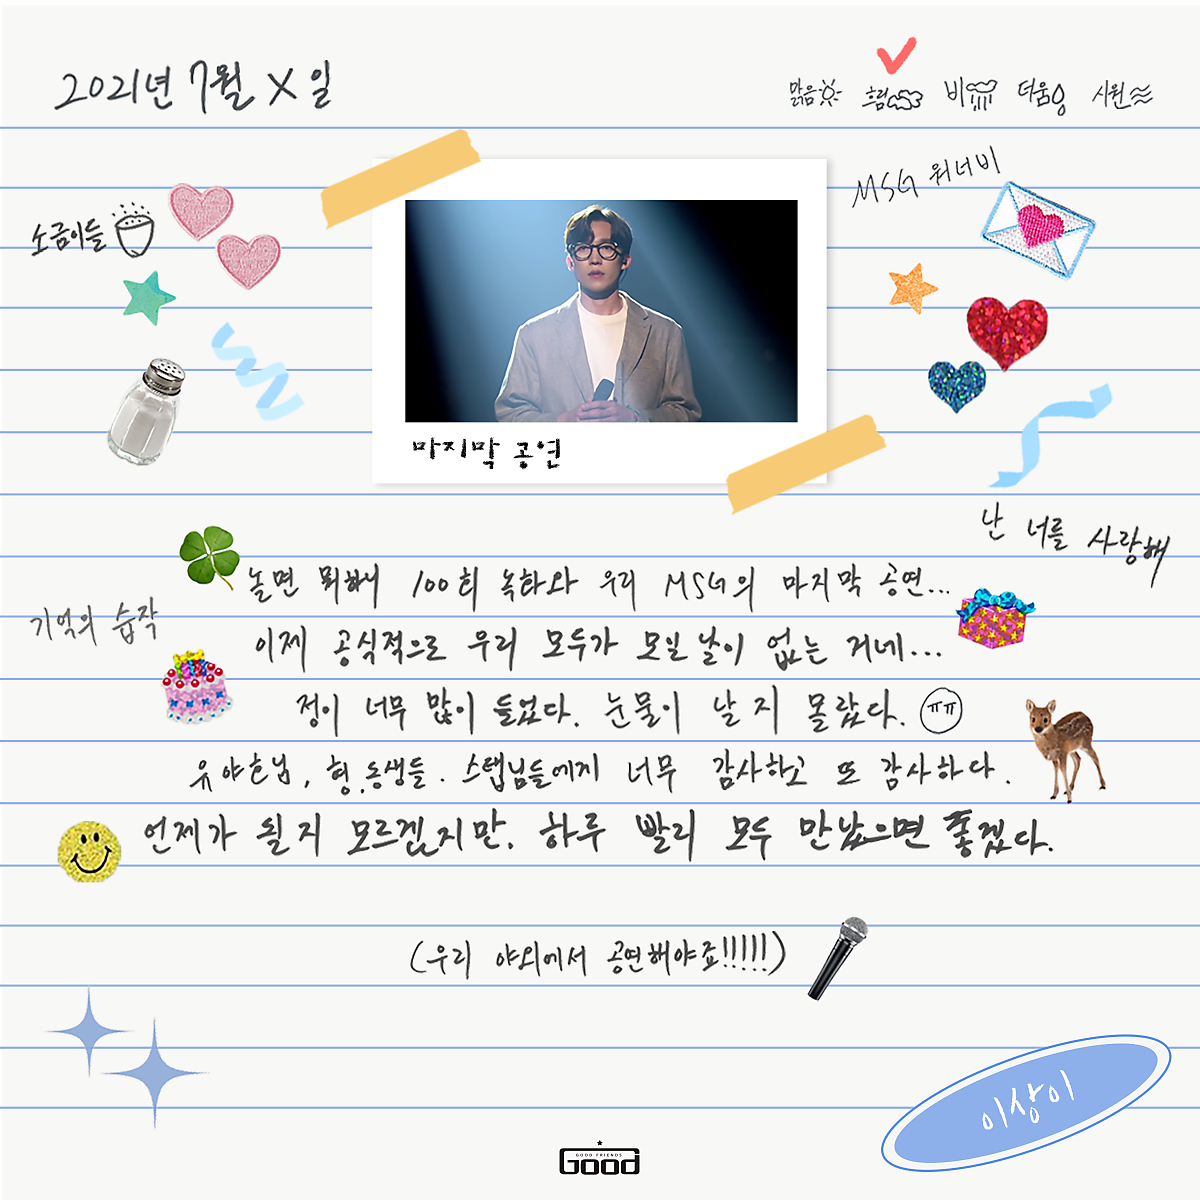 2021년 7월 X일
맑음 흐림 비 더움 시원
MSG 워너비
소금이들
마지막 공연
난 너를 사랑해
놀면 뭐하니 100회 녹화와 우리 MSG의 마지막 공연...
기억의 습작
이제 공식적으로 우리 모두가 모일 날이 없는 거네...
정이 너무 많이 들었다. 눈물이 날지 몰랐다. ㅠㅠ
유야호님, 형.동생들. 스텝님들에게 너무 감사하고 또 감사하다.
언제가 될지 모르겠지만. 하루 빨리 모두 만났으면 좋겠다.
(우리 야외에서 공연해야죠!!!!!)
이상이
GOOD FRIENDS
Good